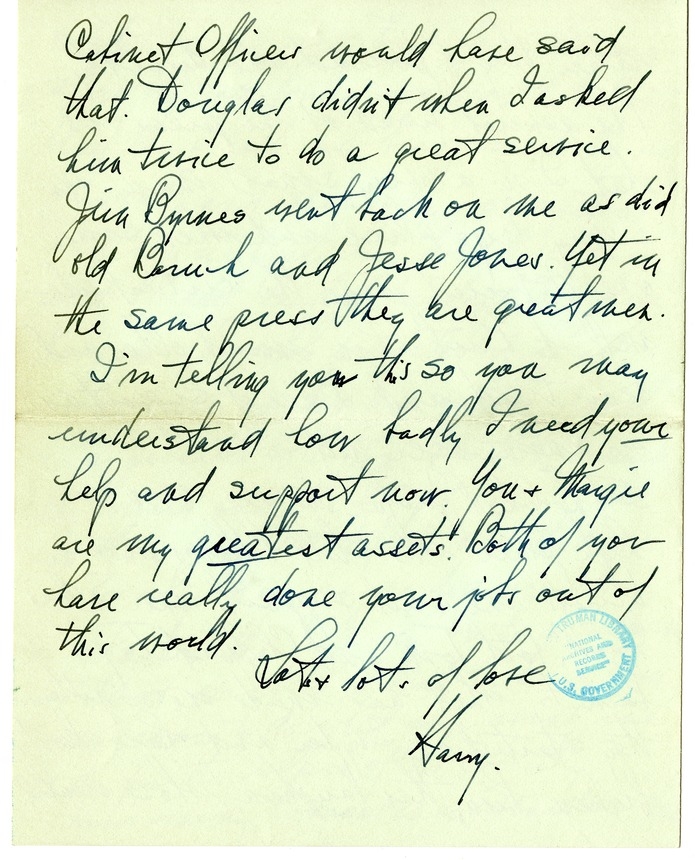 Cabinet Officer would have said
that. Douglas didn't when I asked
him twice to do a great service.
Jim Byrnes went back on me as did
old Baruch and Jesse Jones. Yet in
the same press they are great men.
I'm telling you this so you may
understand how badly I need your
help and support now. You & Margie
are my greatest assets. Both of you
have really done your jobs out of
this world.
Lots & lots of love
Harry.
TRUMAN LIBRARY
"NATIONAL
ARCHIVES AND
RECORDS
SERVICE"
U.S. GOVERNMENT